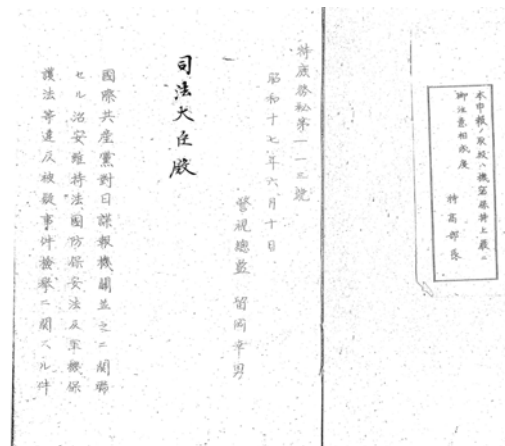 本申報ノ取扱ハ機密保持上厳ニ
御注意相成度
特高部長
特
秘第一一三號
昭和十七年六月十日
警視總監 留岡幸男
司法大臣殿
國際共産黨對日諜報機關並之ニ關聯
セル治安維持法國防保安法及軍機保
護法等違反被疑事件檢擧ニ關スル件